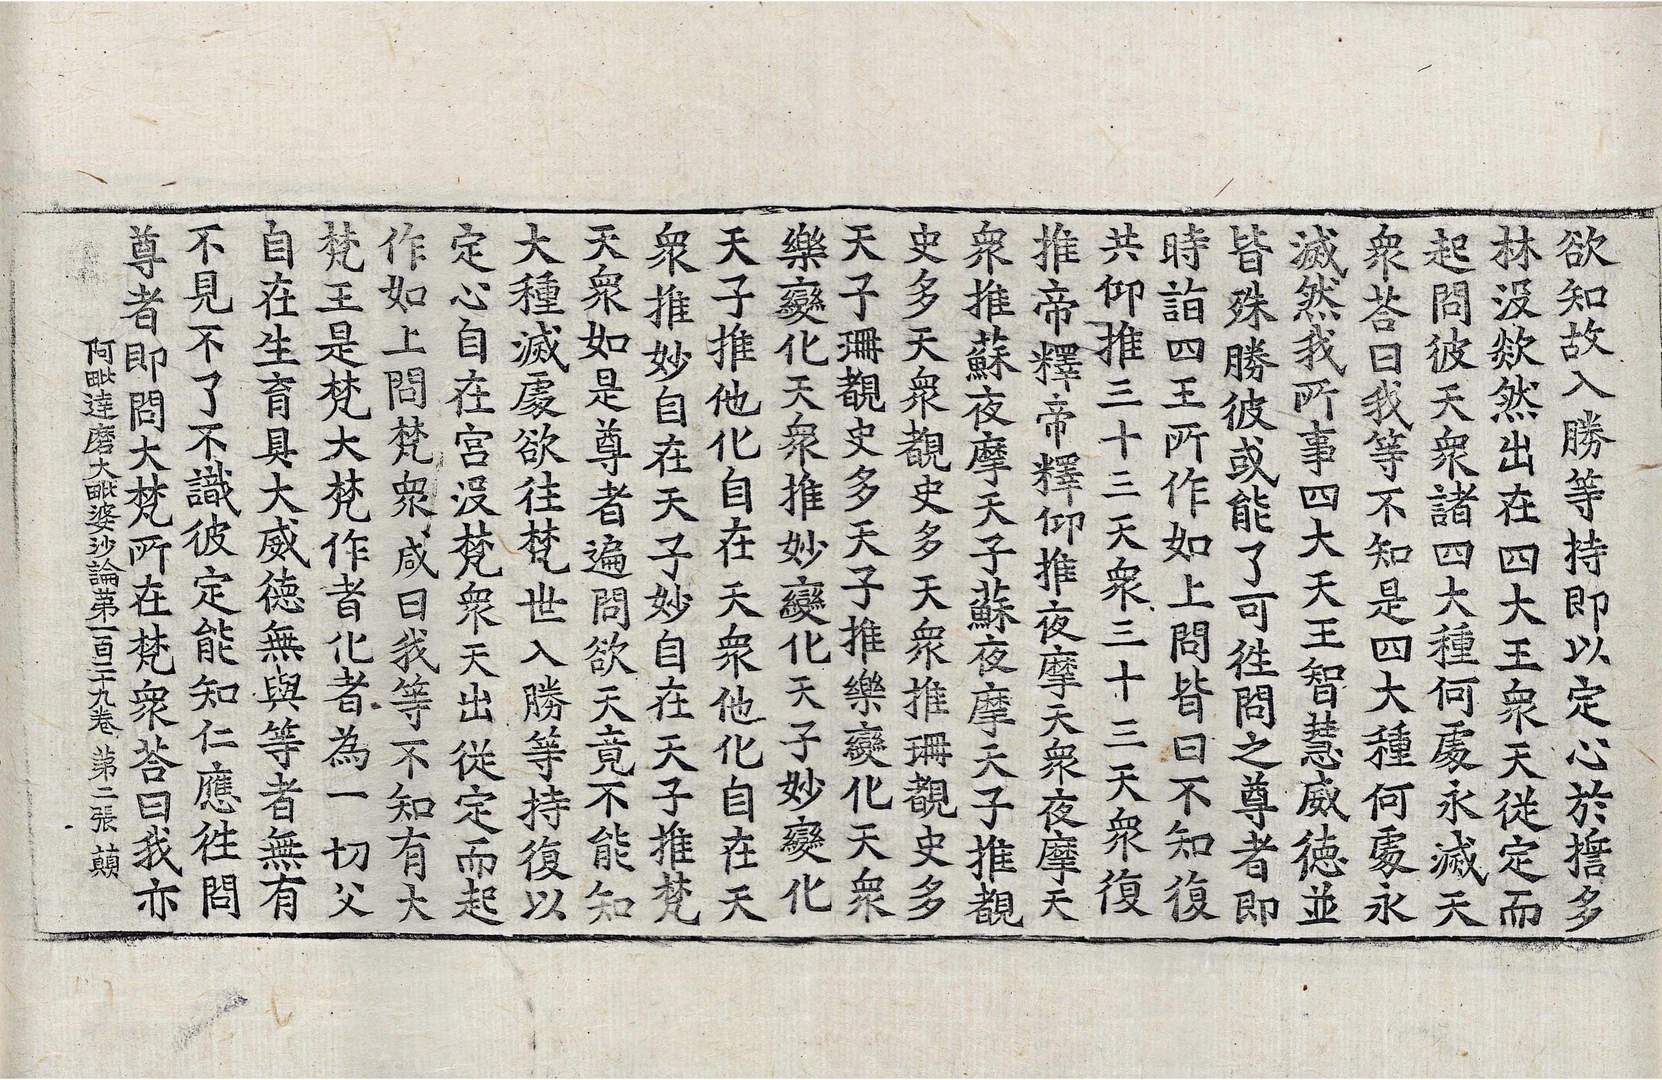 欲知故入勝等持即以定心於擔多
林沒欻然出在四大王衆天從定而
起問彼天衆諸四大種何處永滅天
衆荅曰我等不知是四大種何處永
滅然我所事四大天王智慧威德並
皆殊勝彼或能了可徃問之尊者即
時詣四王所作如上問皆曰不知復
共仰推三十三天衆三十三天衆復
推帝釋帝釋仰推夜摩天衆夜摩天
衆推蘇夜摩天子蘇夜摩天子推覩
史多天衆覩史多天衆推珊覩史多
天子珊覩史多天子推樂變化天衆
樂變化天衆推妙變化天子妙變化
天子推他化自在天衆他化自在天
衆推妙自在天子妙自在天子推梵
天衆如是尊者遍問欲天竟不能知
大種滅處欲往梵世入勝等持復以
定心自在宮沒梵衆天出從定而起
作如上問梵衆咸曰我等不知有大
梵王是梵大梵作者化者為一切父
自在生育具大威德無與等者無有
不見不了不識彼定能知仁應徃問
尊者即問大梵所在梵衆荅曰我亦
阿毗達磨大毗婆沙論苐一百二十九卷 苐二張 顛